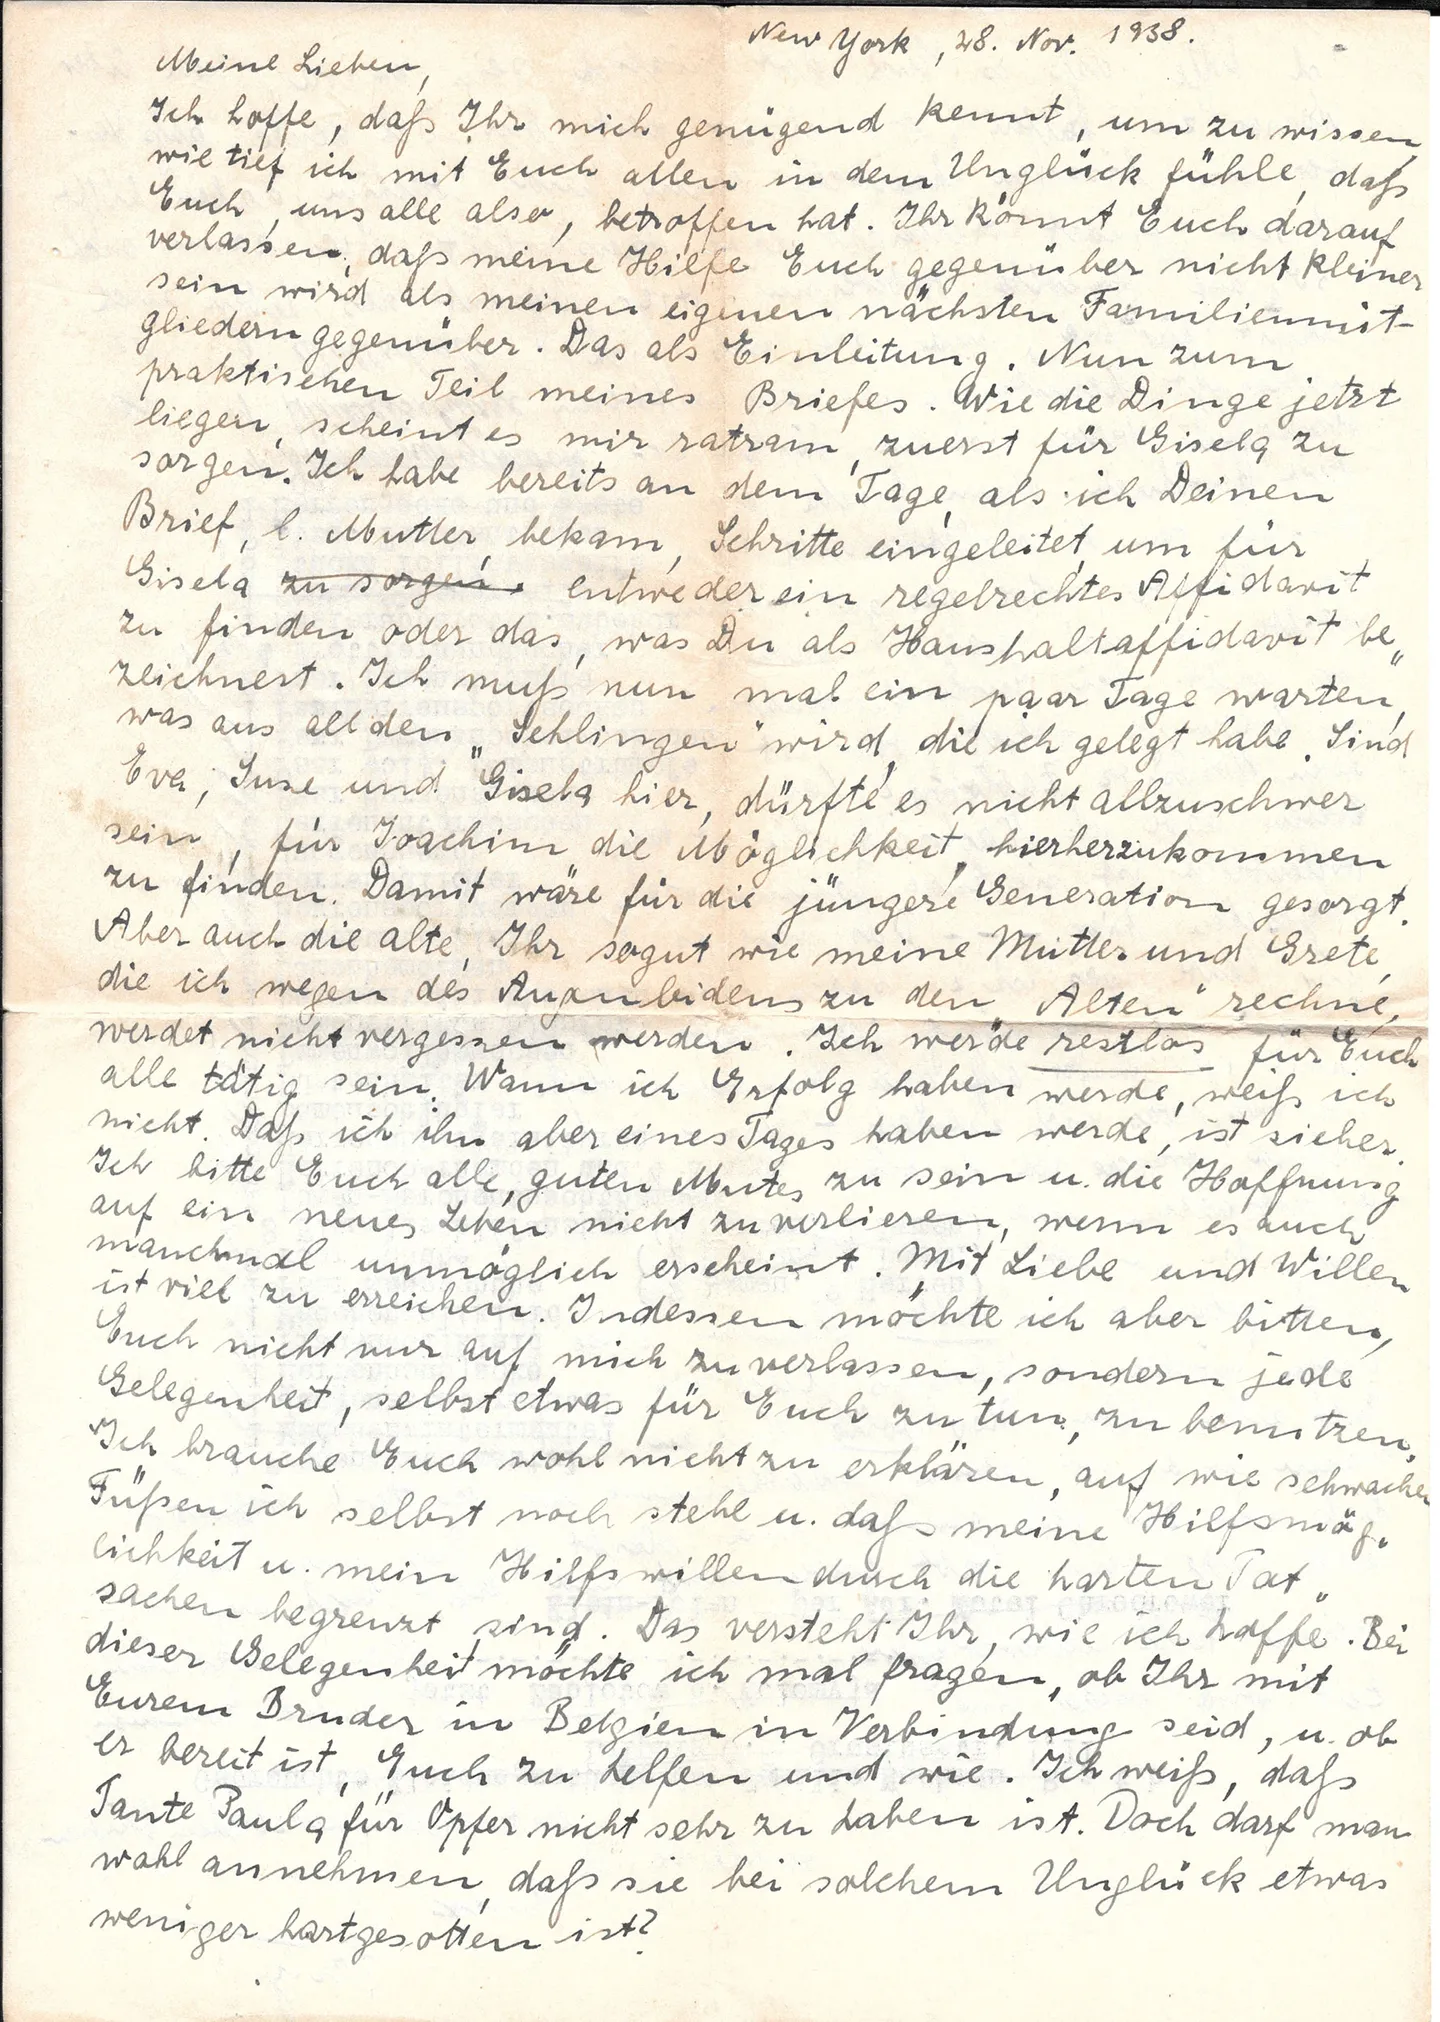 New York, 28. Nov. 1938.
Meine Lieben,
Ich hoffe, daß Ihr mich genügend kennt, um zu wissen,
wie tief ich mit Euch allen in dem Unglück fühle, daß
Euch, uns alle also, betroffen hat. Ihr könnt Euch darauf
verlassen, daß meine Hilfe Euch gegenüber nicht kleiner
sein wird als meinen eigenen nächsten Familienmit-
gliedern gegenüber. Das als Einleitung. Nun zum
praktischen Teil meines Briefes. Wie die Dinge jetzt
liegen, scheint es mir ratsam, zuerst für Gisela zu
sorgen. Ich habe bereits an dem Tage, als ich Deinen
Brief, l. Mutter, bekam, Schritte eingeleitet, um für
Gisela zu sorgen. entweder ein regelrechtes Affidavit
zu finden oder das, was Du als Haushaltaffidavit be„
zeichnest. Ich muß nun mal ein paar Tage warten,
was aus all den „Schlingen" wird, die ich gelegt habe. Sind
Eva, Suse und Gisela hier, dürfte es nicht allzuschwer
sein, für Joachim die Möglichkeit, hierherzukommen
zu finden. Damit wäre für die jüngere Generation gesorgt.
Aber auch die alte, Ihr sogut wie meine Mutter und Grete,
die ich wegen des Augenleidens zu den „Alten" rechne,
werdet nicht vergessen werden. Ich werde restlos für Euch
alle tätig sein. Wann ich Erfolg haben werde, weiß ich
nicht. Daß ich ihn aber eines Tages haben werde, ist sicher.
Ich bitte Euch alle, guten Mutes zu sein u. die Hoffnung
auf ein neues Leben nicht zu verlieren, wenn es auch
manchmal unmöglich erscheint. Mit Liebe und Willen
ist viel zu erreichen. Indessen möchte ich aber bitten,
Euch nicht nur auf mich zu verlassen, sondern jede
Gelegenheit, selbst etwas für Euch zu tun, zu benutzen.
Ich brauche Euch wohl nicht zu erklären, auf wie schwachen
Füßen ich selbst noch stehe u. daß meine Hilfsmög„
lichkeit u. mein Hilfswillen durch die harten Tat„
sachen begrenzt sind. Das versteht Ihr, wie ich hoffe. Bei
dieser Gelegenheit möchte ich mal fragen, ob Ihr mit
Eurem Bruder in Belgien in Verbindung seid, u. ob
er bereit ist, Euch zu helfen und wie. Ich weiß, daß
Tante Paula für Opfer nicht sehr zu haben ist. Doch darf man
wohl annehmen, daß sie bei solchem Unglück etwas
weniger hartgesotten ist?